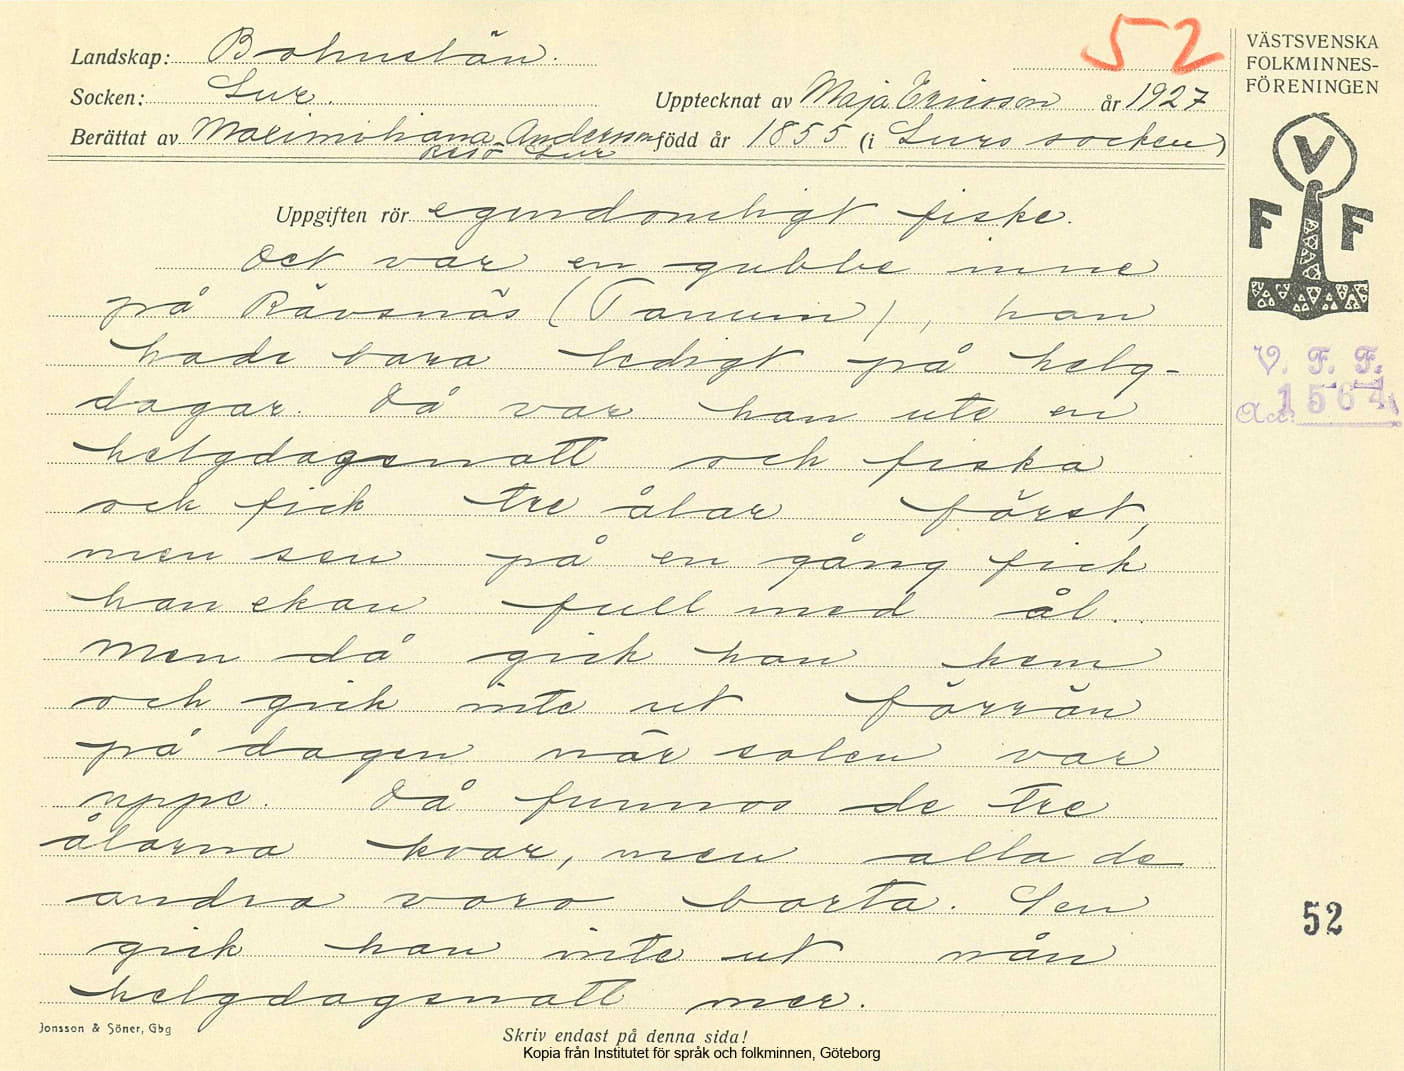 52
Landskap: Bohuslän.
Socken: Lur.
Upptecknat av Maja Ericsson år 1927
Berättat av Maximiliana Andersson född år 1855 (i Lurs socken)
Resö Lur
VÄSTSVENSKA
FOLKMINNES-
FÖRENINGEN
V
F F
V. F. F.
Acc. 1564
Uppgiften rör egendomligt fiske.
Det var en gubbe inne
på Rävsnäs (Tanum), han
hade bara ledigt på helg-
dagar. Då var han ute en
helgdagsnatt och fiska
och fick tre ålar först,
men sen på en gång fick
han ekan full med ål.
Men då gick han hem
och gick inte ut förrän
på dagen när solen var
uppe. Då funnos de tre
ålarna kvar, men alla de
andra voro borta. Sen
gick han inte ut nån
helgdagsnatt mer.
52
Jonsson & Söner, Gbg
Skriv endast på denna sida!
Kopia från Institutet för språk och folkminnen, Göteborg